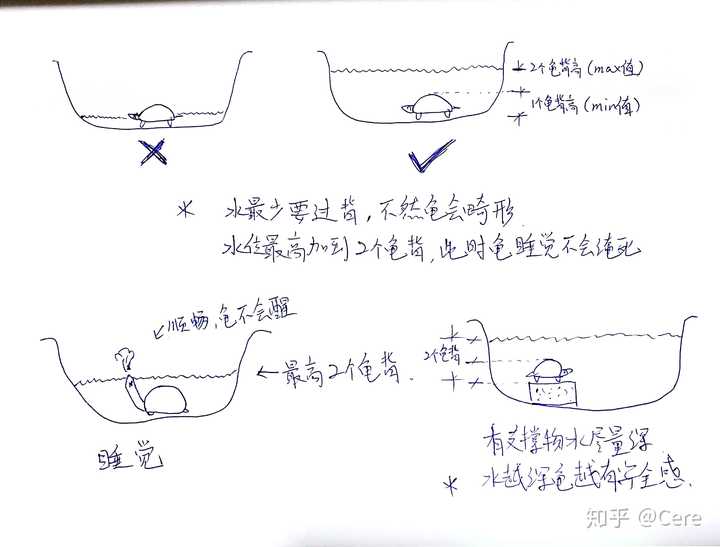 2个龟背高(max值)
1个龟背高(min值)
* 水最少要过背,不然龟会畸形
水位最高加到2个龟背,此时龟睡觉不会淹死
↙顺畅,龟不会醒
←最高2个龟背.
睡觉
2个龟背
有支撑物水尽量深
* 水越深龟越有安全感.
知乎 @Cere